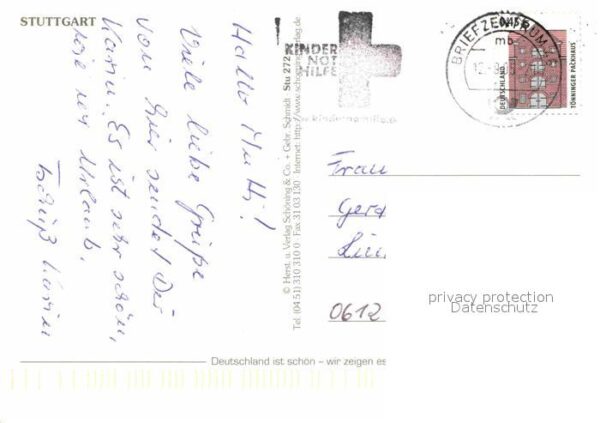 STUTTGART
Hallo Mutti!
Viele liebe Grüße
von hier sendet Dir
Karin. Es ist sehr schön,
wie im Urlaub,
Tschüß Karin
© Herst. u. Verlag Schöning & Co. + Gebr. Schmidt Stu 272
Tel. (04 51) 310 310 0 · Fax 31 03 130 · Internet: http://www.schoening-verlag.de
KINDER
NOT
HILFE
BRIEFZENTRUM
mb
DEUTSCHLAND
TÖNNINGER PACKHAUS
Frau
Gerd
0612
privacy protection
Datenschutz
Deutschland ist schön – wir zeigen es